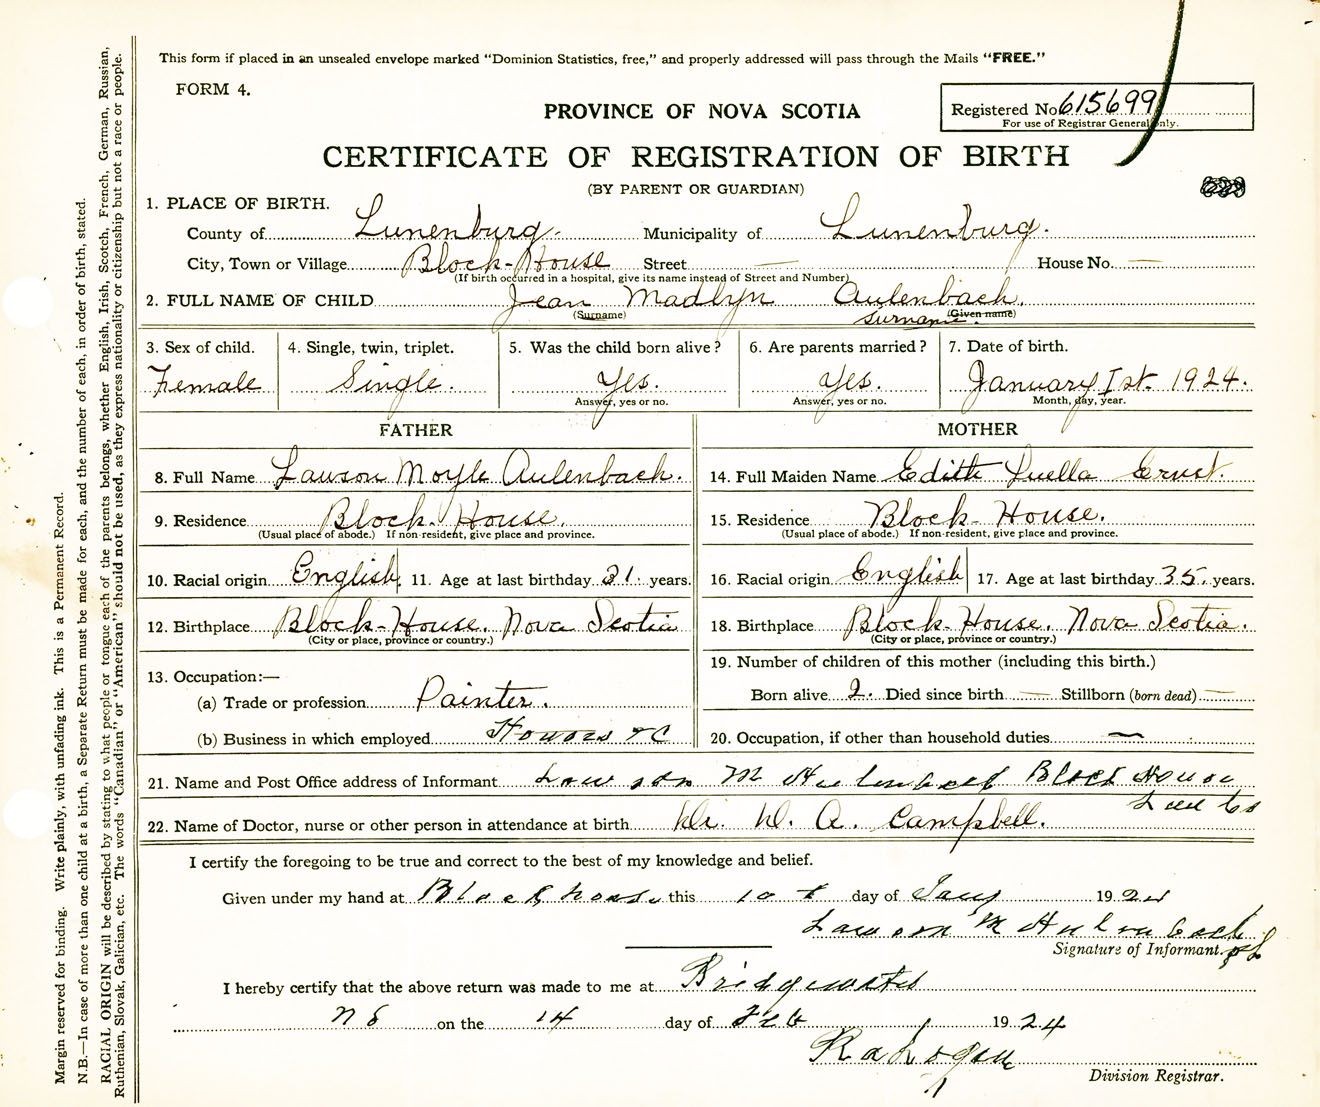 This form if placed in an unsealed envelope marked “Dominion Statistics, free,” and properly addressed will pass through the Mails “FREE.”
FORM 4.
PROVINCE OF NOVA SCOTIA
Registered No 615699
For use of Registrar General only.
CERTIFICATE OF REGISTRATION OF BIRTH
(BY PARENT OR GUARDIAN)
1. PLACE OF BIRTH.
County of Lunenburg. Municipality of Lunenburg.
City, Town or Village Block-House Street — House No. —
(If birth occurred in a hospital, give its name instead of Street and Number)
2. FULL NAME OF CHILD Jean Madlyn Aulenbach.
(Surname) surname. (Given name)
3. Sex of child. 4. Single, twin, triplet. 5. Was the child born alive? 6. Are parents married? 7. Date of birth.
Female Single. Yes. Yes. January 1st. 1924.
Answer, yes or no. Answer, yes or no. Month, day, year.
FATHER MOTHER
8. Full Name Lawson Moyle Aulenbach. 14. Full Maiden Name Edith Luella Ernst.
9. Residence Block-House. 15. Residence Block-House.
(Usual place of abode.) If non-resident, give place and province. (Usual place of abode.) If non-resident, give place and province.
10. Racial origin English 11. Age at last birthday 31. years. 16. Racial origin English 17. Age at last birthday 35. years.
12. Birthplace Block-House. Nova Scotia 18. Birthplace Block-House. Nova Scotia.
(City or place, province or country.) (City or place, province or country.)
13. Occupation:— 19. Number of children of this mother (including this birth.)
(a) Trade or profession Painter. Born alive 2. Died since birth — Stillborn (born dead) —
(b) Business in which employed Houses &c 20. Occupation, if other than household duties —
21. Name and Post Office address of Informant Lawson M Aulenback Block House
Lun Co
22. Name of Doctor, nurse or other person in attendance at birth Dr. D. A. Campbell.
I certify the foregoing to be true and correct to the best of my knowledge and belief.
Given under my hand at Blockhouse this 10 t day of Jany 1924
Lawson M Aulenback
Signature of Informant.
I hereby certify that the above return was made to me at Bridgewater
N S on the 14 day of Feb 1924
Division Registrar.
Margin reserved for binding. Write plainly, with unfading ink. This is a Permanent Record.
N.B.—In case of more than one child at a birth, a Separate Return must be made for each, and the number of each, in order of birth, stated.
RACIAL ORIGIN will be described by stating to what people or tongue each of the parents belongs, whether English, Irish, Scotch, French, German, Russian,
Ruthenian, Slovak, Galician, etc. The words “Canadian” or “American” should not be used, as they express nationality or citizenship but not a race or people.